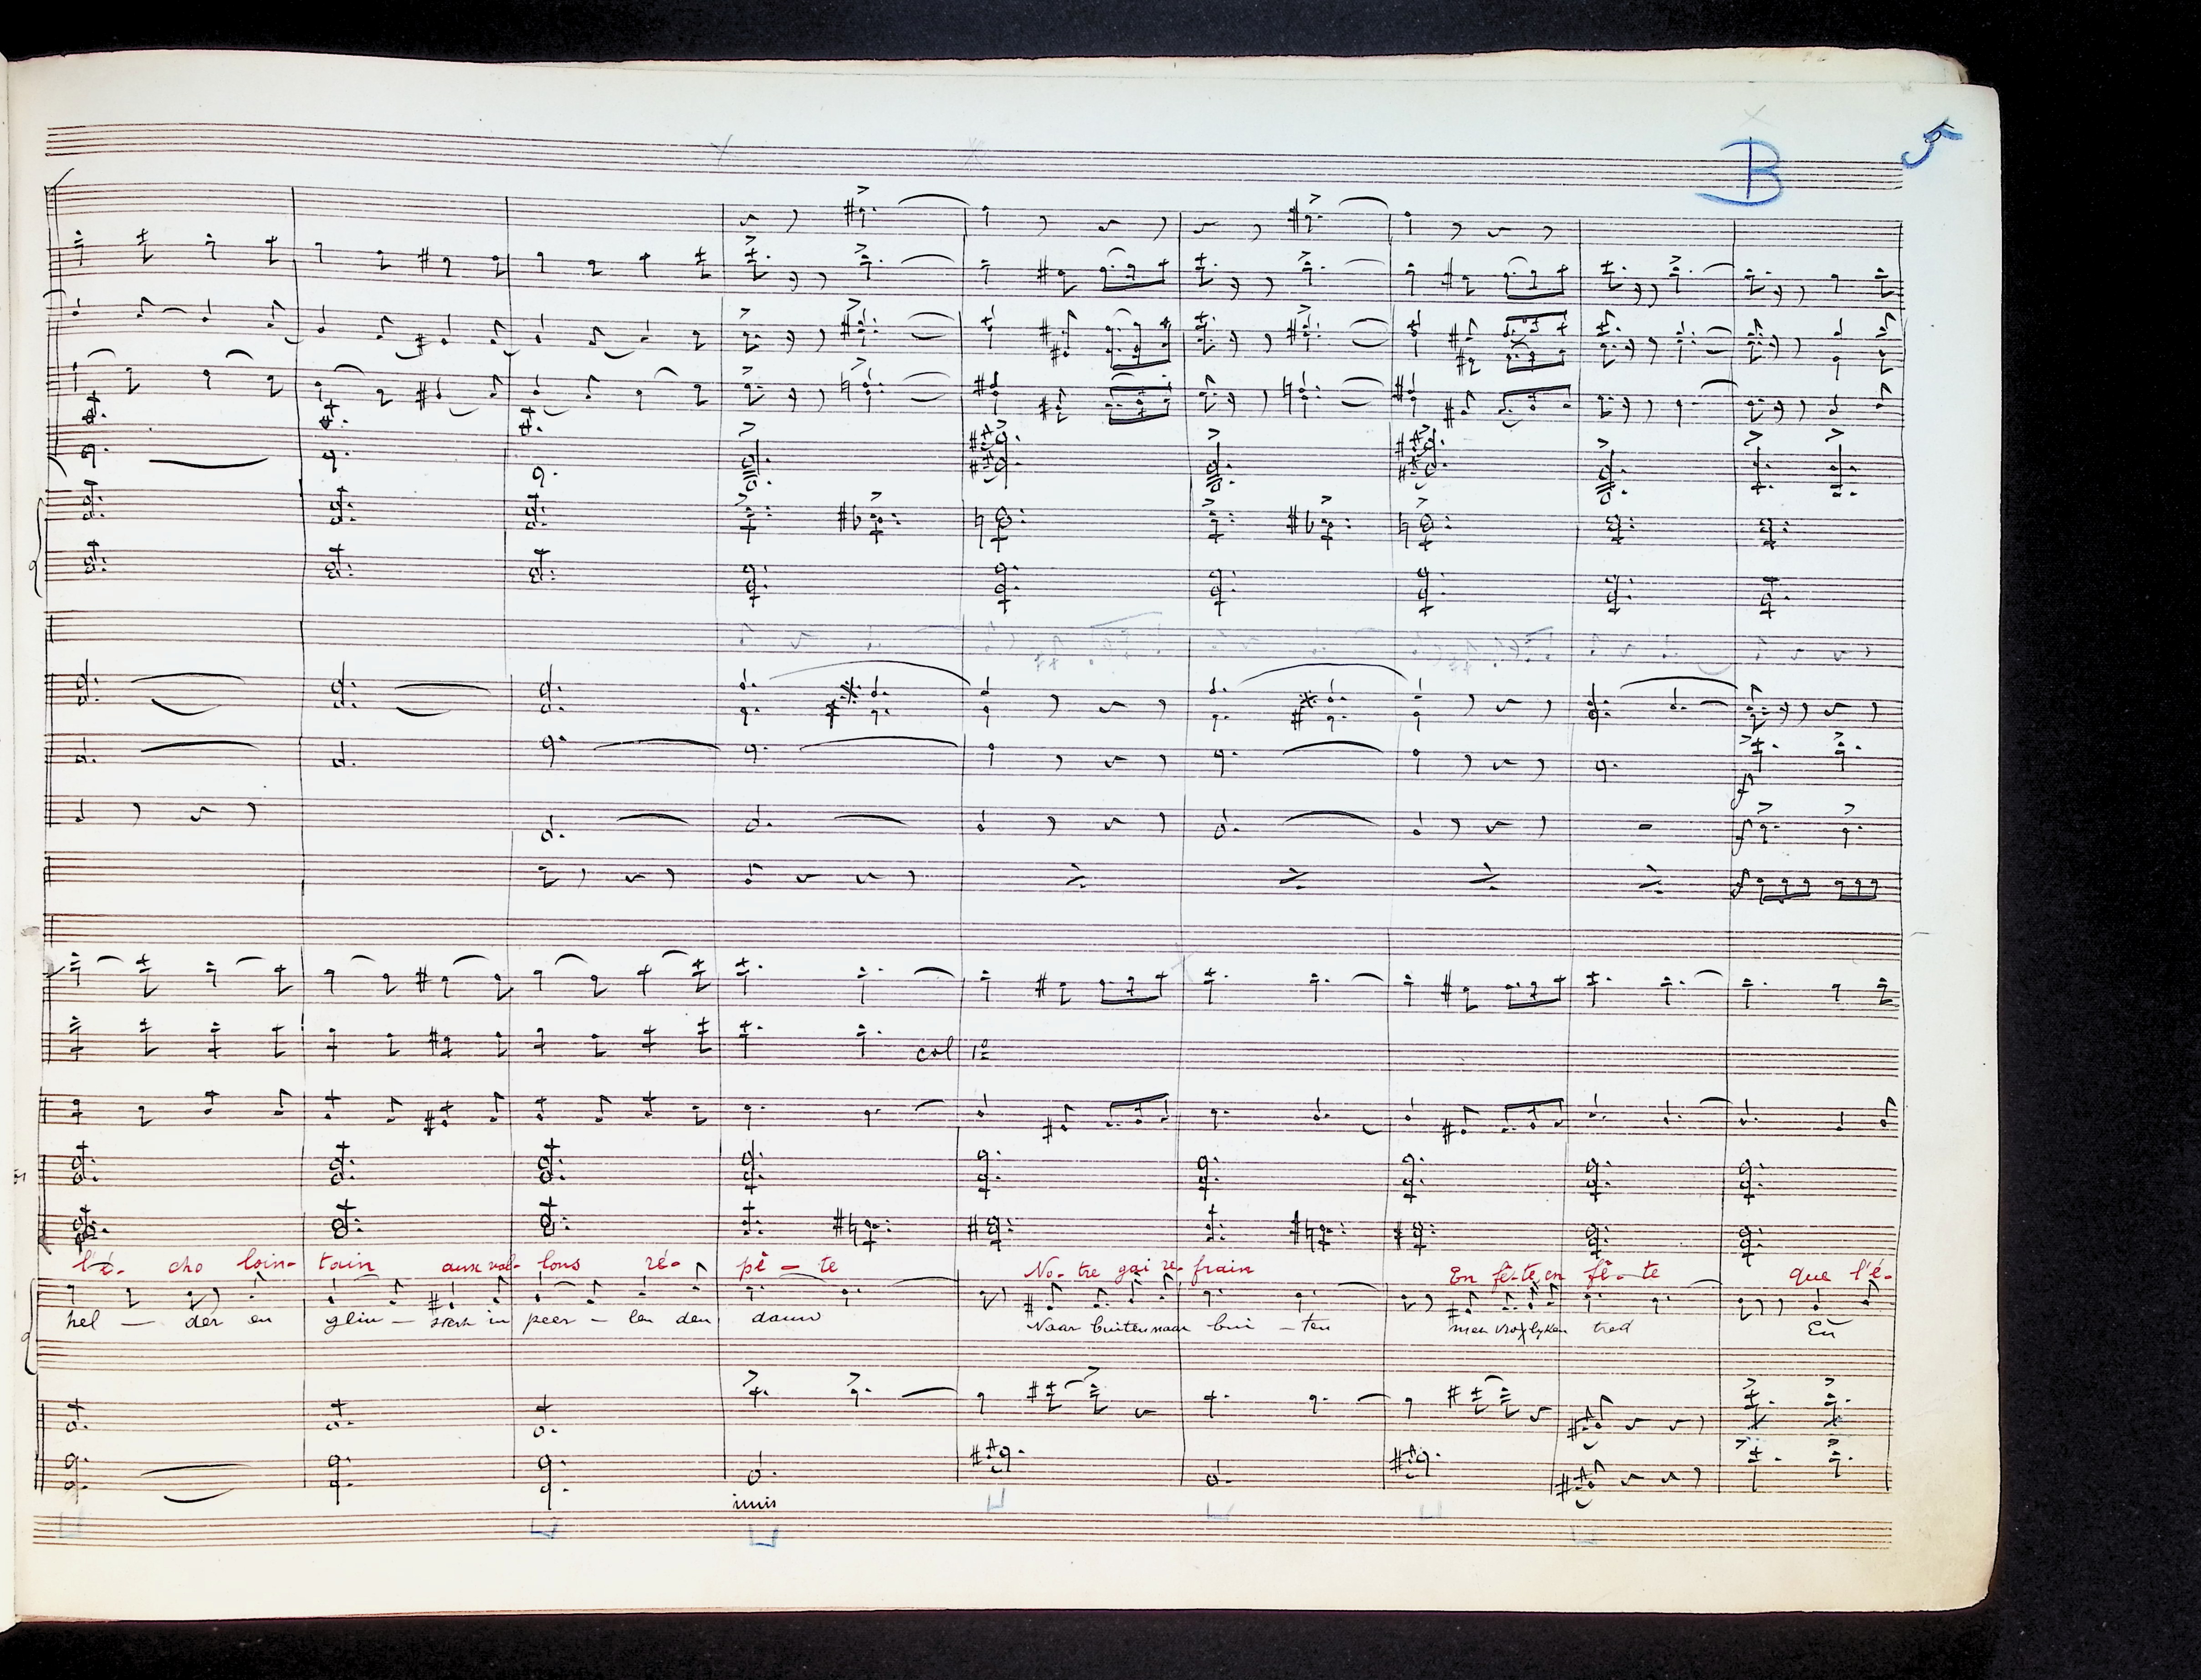 B
5
col 1º
l'é- cho loin- tain aux val- lons ré- pè - te No- tre gai re- frain En fê- te, en fê- te que l'é-
hel — der en glin - stert in peer - len den dauw Naar buiten naar bui - ten men vrolyken tred En
unis